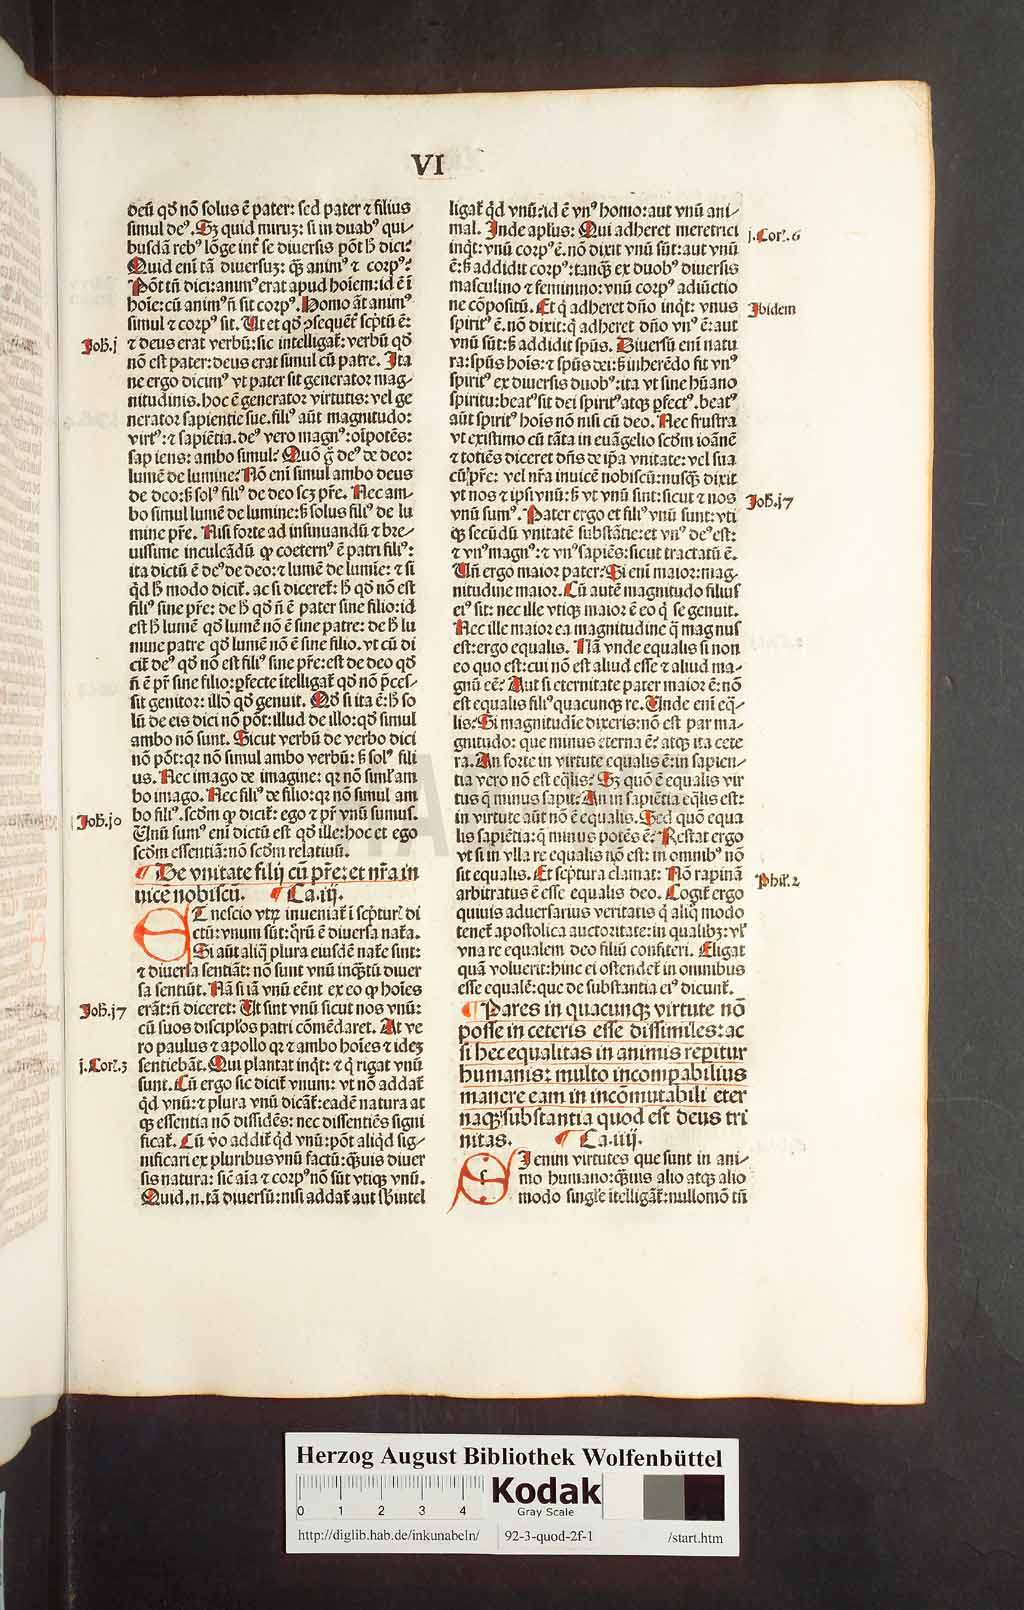 VI
deū qd nō solus ē pater: sed pater ⁊ filius
simul deꝰ. Sꝫ quid miruꝫ: si in duabꝰ qui-
busdā rebꝰ lōge inṫ se diuersis pōt ħ dici?
Quid enī tā diuersuꝫ: qȝ animꝰ ⁊ corpꝰ?
Pōt tn̄ dici: animꝰ erat apud hoīem: id ē ī
hoīe: cū animꝰ n̄ sit corpꝰ. Homo āt animꝰ
simul ⁊ corpꝰ sit. Ut et qd ꝯsequēt̄ scptū ē:
Joh̄.j
⁊ deus erat verbū: sic intelligat̄: verbū qd
nō est pater: deus erat simul cū patre. Ita
ne ergo dicimꝰ vt pater sit generator mag-
nitudinis. hoc ē generator virtutis: vel ge
nerator sapientie sue. filiꝰ aūt magnitudo:
virtꝰ: ⁊ sapiētia. deꝰ vero magnꝰ: oīpotēs:
sapiens: ambo simul? Quō g̊ deꝰ de deo:
lumē de lumine? Nō enī simul ambo deus
de deo: s̄ solꝰ filiꝰ de deo scꝫ pr̄e. Nec am-
bo simul lumē de lumine: s̄ solus filiꝰ de lu
mine pr̄e. Nisi forte ad insinuandū ⁊ bre-
uissime inculcādū ꝙ coeternꝰ ē patri filiꝰ:
ita dictū ē deꝰ de deo: ⁊ lumē de lumīe: ⁊ si
qd ħ modo dicit̄. ac si diceret̄: ħ qd nō est
filiꝰ sine pr̄e: de ħ qd n̄ ē pater sine filio: id
est ħ lumē qd lumē nō ē sine patre: de ħ lu
mine patre qd lumē nō ē sine filio. vt cū di
cit̄ deꝰ qd nō est filiꝰ sine pr̄e: est de deo qd
n̄ ē pr̄ sine filio: ꝑfecte ītelligat̄ qd nō p̄ces-
sit genitor: illō qd genuit. Qd si ita ē: ħ so
lū de eis dici nō pōt: illud de illo: qd simul
ambo nō sunt. Sicut verbū de verbo dici
nō pōt: qꝛ nō simul ambo verbū: s̄ solꝰ fili
us. Nec imago de imagine: qꝛ nō siml̄ am
bo imago. Nec filiꝰ de filio: qꝛ nō simul am
Joh̄.jo
bo filiꝰ. scd̄m ꝙ dicit̄: ego ⁊ pr̄ vnū sumus.
Unū sumꝰ enī dictū est qd ille: hoc et ego
scd̄m essentiā: nō scd̄m relatiuū.
¶ De vnitate filij cū pr̄e: et nr̄a in
uicē nobiscū. ¶ Ca.iij.
ET nescio vtꝝ inueniat̄ ī scpturꝭ di
ctū: vnum sūt: qrū ē diuersa nat̄a.
Si aūt aliq̄ plura eiusdē nat̄e sint:
⁊ diuersa sentiāt: nō sunt vnū inqȝtū diuer
sa sentiūt. Nā si iā vnū eēnt ex eo ꝙ hoīes
Joh̄.j7
erāt: n̄ diceret: Ut sint vnū sicut nos vnū:
cū suos discipl̄os patri cōmēdaret. At ve
ro paulus ⁊ apollo qꝛ ⁊ ambo hoīes ⁊ ideꝫ
j.Corꝭ.3
sentiebāt. Qui plantat inqt: ⁊ q rigat vnū
sunt. Cū ergo sic dicit̄ vnum: vt nō addat̄
qd vnū: ⁊ plura vnū dicāt̄: eadē natura at
qȝ essentia nō dissidēs: nec dissentiēs signi
ficat̄. Cū v̊o addit̄ qd vnū: pōt aliqd sig-
nificari ex pluribus vnū factū: qȝuis diuer
sis natura: sic aīa ⁊ corpꝰ nō sūt vtiqȝ vnū.
Quid.n. tā diuersū: nisi addat̄ aut sb̄intel
ligat̄ qd vnū: id ē vnꝰ homo: aut vnū ani-
mal. Inde aplus: Qui adheret meretrici
j.Corꝭ.6
inqt: vnū corpꝰ ē. nō dixit vnū sūt: aut vnū
ē: s̄ addidit corpꝰ: tanqȝ ex duobꝰ diuersis
masculino ⁊ feminino: vnū corpꝰ adiūctio
ne cōpositū. Et q adheret dn̄o inqt: vnus
Ibidem
spiritꝰ ē. nō dixit: q adheret dn̄o vnꝰ ē: aut
vnū sūt: s̄ addidit spūs. Diuersū enī natu
ra: spūs hoīs: ⁊ spūs dei: s̄ inherēdo fit vnꝰ
spiritꝰ ex diuersis duobꝰ: ita vt sine hūano
spiritu: beatꝰ sit dei spiritꝰ atqȝ ꝑfectꝰ. beatꝰ
aūt spiritꝰ hoīs nō nisi cū deo. Nec frustra
vt existimo cū tāta in euāgelio scd̄m ioānē
⁊ totiēs diceret dn̄s de ip̄a vnitate: vel sua
cū pr̄e: vel nr̄a inuicē nobiscū: nusqȝ dixit
vt nos ⁊ ipsi vnū: s̄ vt vnū sint: sicut ⁊ nos
Joh̄.j7
vnū sumꝰ. Pater ergo et filiꝰ vnū sunt: vti
qȝ secūdū vnitatē substātie: et vnꝰ deꝰ est:
⁊ vnꝰ magnꝰ: ⁊ vnꝰ sapiēs: sicut tractatū ē.
Un̄ ergo maior pater? Si enī maior: mag-
nitudine maior. Cū autē magnitudo filius
eiꝰ sit: nec ille vtiqȝ maior ē eo q se genuit.
Nec ille maior ea magnitudine q̄ magnus
est: ergo equalis. Nā vnde equalis si non
eo quo est: cui nō est aliud esse ⁊ aliud ma-
gnū eē? Aut si eternitate pater maior ē: nō
est equalis filiꝰ quacunqȝ re. Unde enī eq-
lis? Si magnitudīe dixeris: nō est par ma-
gnitudo: que minus eterna ē? atqȝ ita cete
ra. An forte in virtute equalis ē: in sapien-
tia vero nō est eq̄lis? Sꝫ quō ē equalis vir
tus q̄ minus sapit? An in sapiētia eq̄lis est:
in virtute aūt nō ē equalis. Sed quō equa
lis sapiētia: q̄ minus potēs ē? Restat ergo
vt si in vlla re equalis nō est: in omnibꝰ nō
sit equalis. Et scptura clamat: Nō rapinā
Phil̄.2
arbitratus ē esse equalis deo. Cogit̄ ergo
quiuis aduersarius veritatis q̄ aliq̄ modo
tenet̄ apostolica auctoritate: in qualibꝫ: vl̄
vna re equalem deo filiū confiteri. Eligat
quā voluerit: hinc ei ostendet̄ in omnibus
esse equalē: que de substantia eiꝰ dicunt̄.
¶ Pares in quacunqȝ virtute nō
posse in ceteris esse dissimiles: ac
si hec equalitas in animis reperitur
humanis: multo incomꝑabilius
manere eam in incōmutabili eter
naqȝ substantia quod est deus tri
nitas. ¶ Ca.iiij.
SIenim virtutes que sunt in ani-
mo humano: qȝuis alio atqȝ alio
modo singl̄e ītelligāt̄: nullomō tn̄
Herzog August Bibliothek Wolfenbüttel
0 1 2 3 4
Kodak
Gray Scale
http://diglib.hab.de/inkunabeln/ 92-3-quod-2f-1 /start.htm